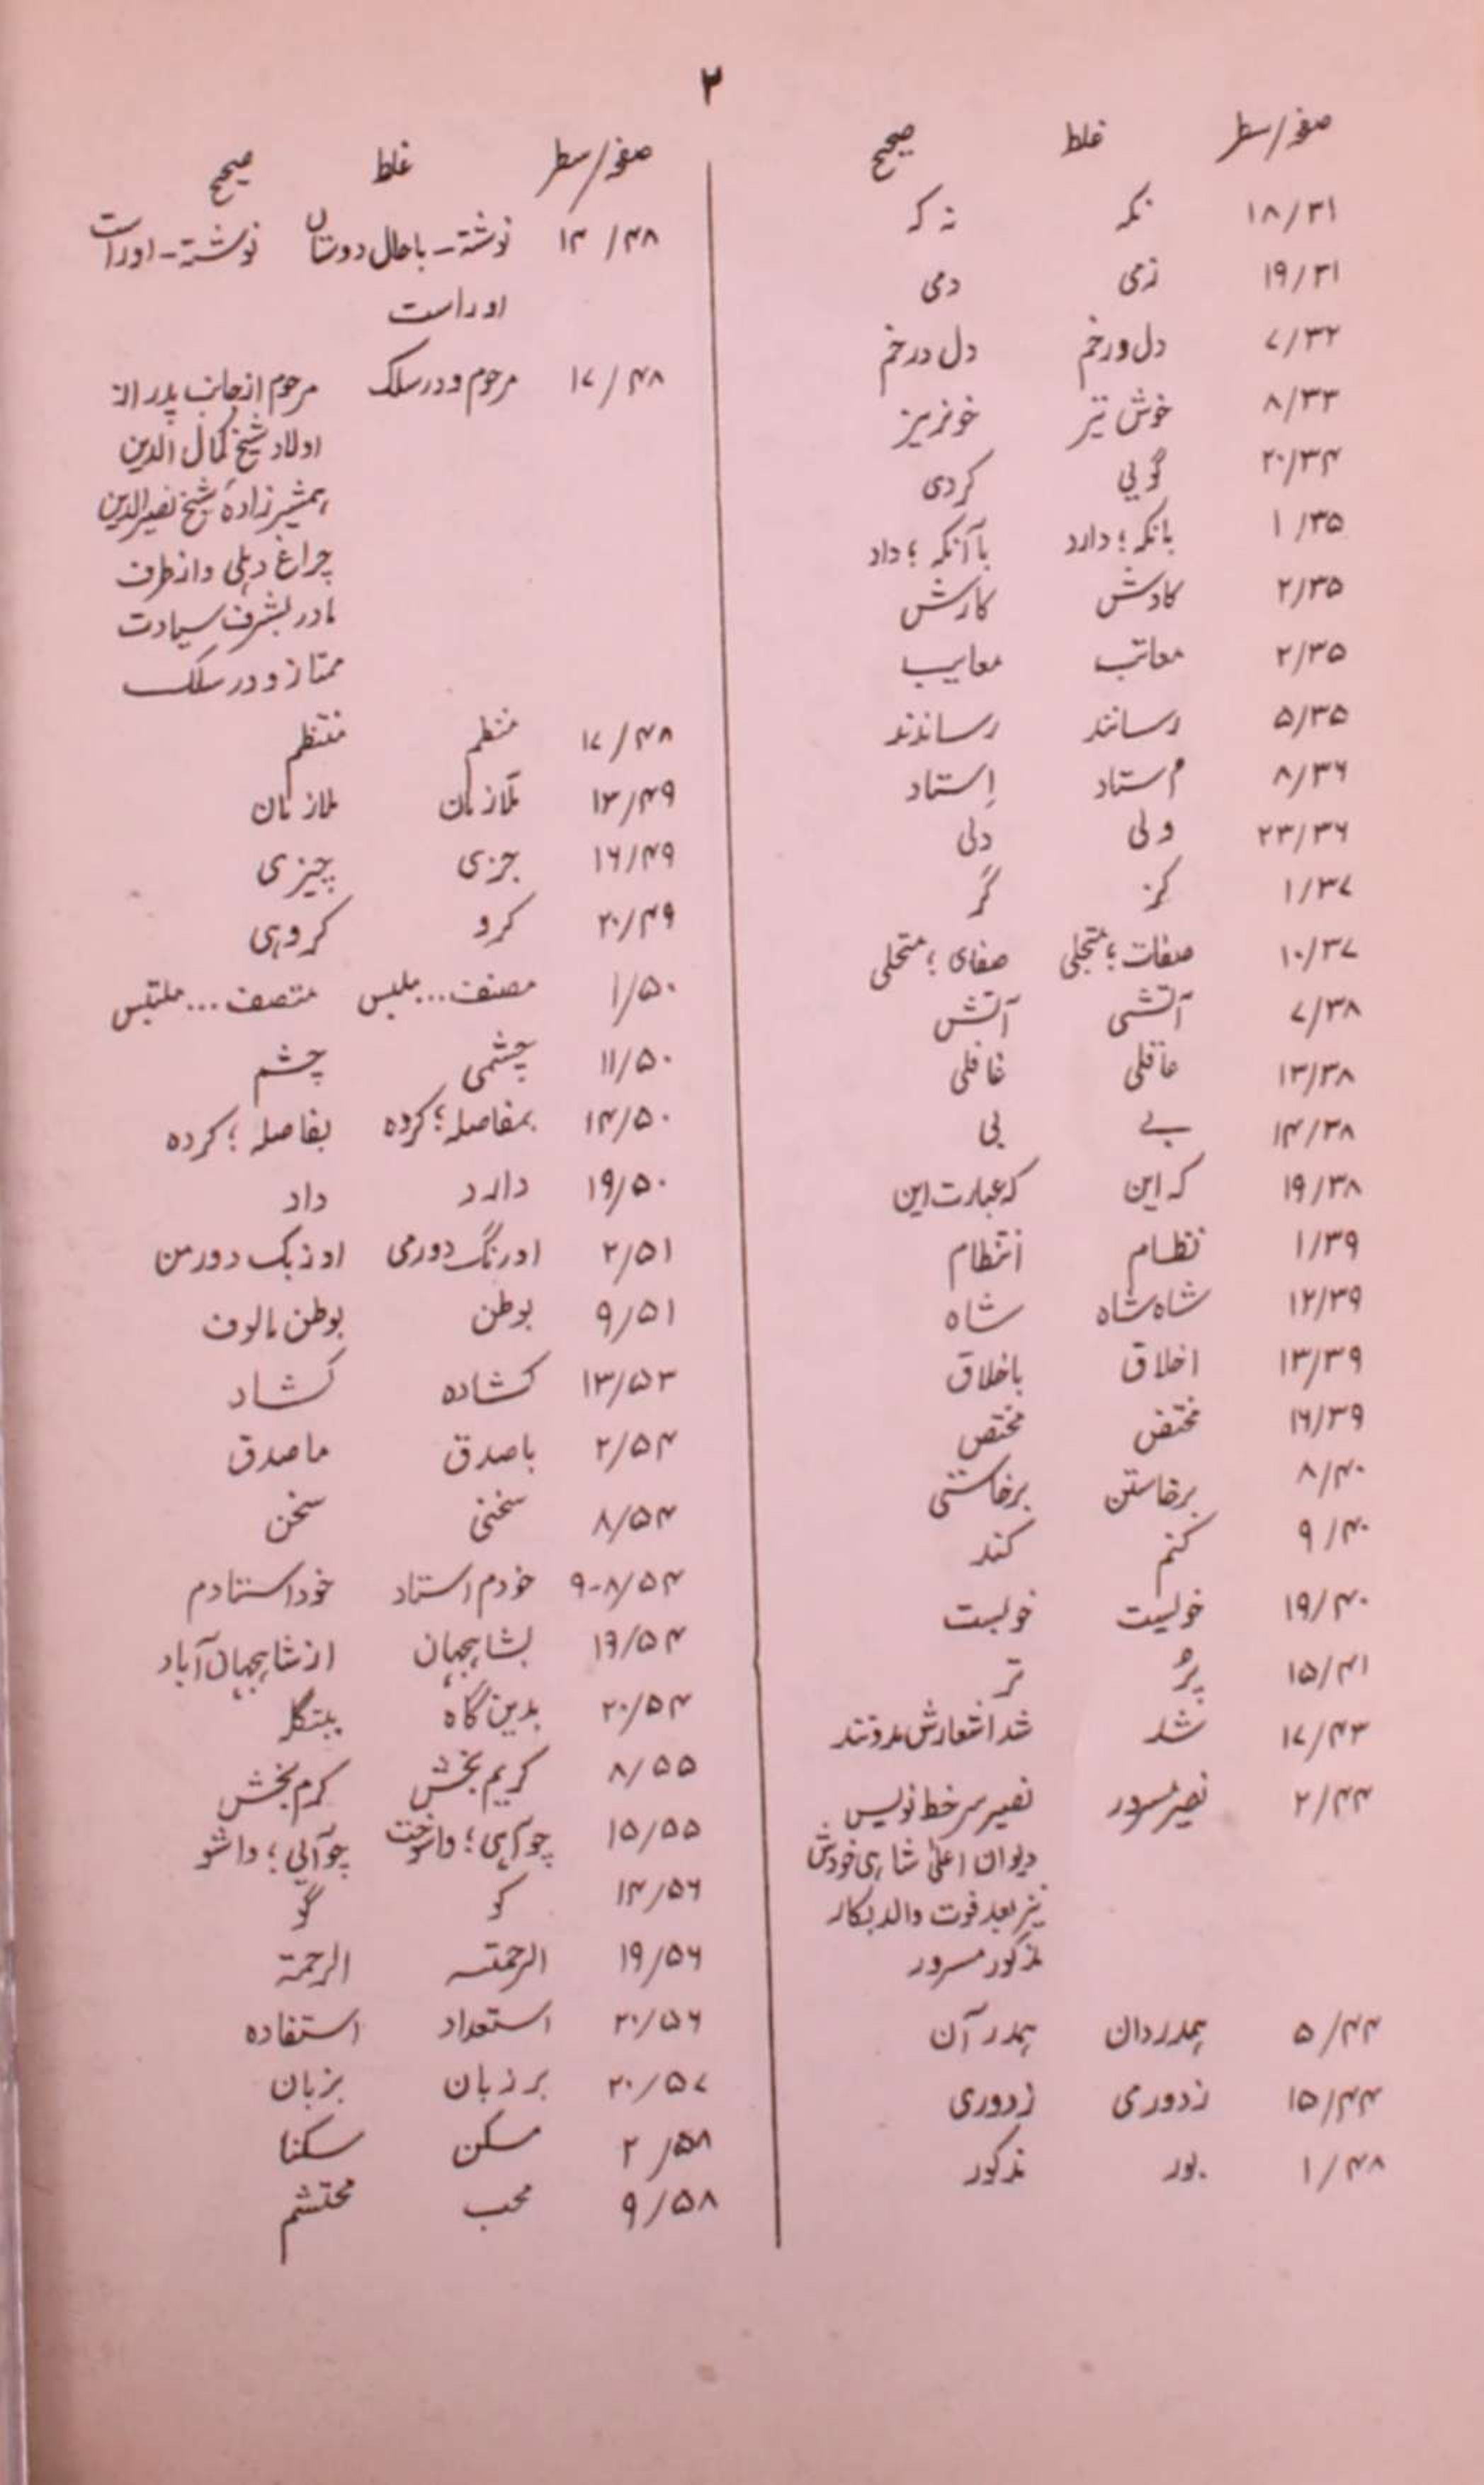 ۲
صفحہ/سطر غلط صحیح
۱۸/۳۱ نکہ نہ کہ
۱۹/۳۱ زمی دمی
۷/۳۲ دل ورخم دل درخم
۸/۳۳ خوش تیز خونریز
۲۰/۳۴ گویی کردی
۱/۳۵ بانکہ؛ دارد باآنکہ؛ داد
۲/۳۵ کادش کارش
۲/۳۵ معاتب معایب
۵/۳۵ رسانند رساندند
۸/۳۶ اُستاد اِستاد
۲۳/۳۶ ولی دلی
۱/۳۷ کز گر
۱۰/۳۷ صفات؛ متجلی صفای؛ متحلی
۷/۳۸ آتشی آتش
۱۳/۳۸ عاقلی غافلی
۱۴/۳۸ بے بی
۱۹/۳۸ کہ این کہ عبارت این
۱/۳۹ نظام انتظام
۱۲/۳۹ شاہ شاہ شاہ
۱۳/۳۹ اخلاق باخلاق
۱۶/۳۹ مختض مختص
۸/۴۰ برخاستن برخاستنی
۹/۴۰ کنم کند
۱۹/۴۰ خولیت خوبست
۱۵/۴۱ پُر تر
۱۷/۴۳ شد شد اشعارش مدونند
۲/۴۴ نصیر مسرور نصیر سرخط نویس
دیوان اعلیٰ شاہی خودش
نیز بعد فوت والد بکار
مذکور مسرور
۵/۴۴ ہمدردان ہمدر آن
۱۵/۴۴ زدورمی زدوری
۱/۴۸ بور مذکور
صفحہ/سطر غلط صحیح
۱۴/۴۸ نوشتہ۔ باحال دوستان نوشتہ۔ اوراست
اوراست
۱۷/۴۸ مرحوم و در سلک مرحوم از جانب پدر از
اولاد شیخ کمال الدین
ہمشیرزادہٴ شیخ نصیرالدین
چراغ دہلی و از طرف
مادر بشرف سیادت
ممتاز و در سلک
۱۷/۴۸ منظم منتظم
۱۳/۴۹ تلازمان ملازمان
۱۶/۴۹ جزی چیزی
۲۰/۴۹ کرو کروہی
۱/۵۰ مصنف...ملبس متصف...ملتبس
۱۱/۵۰ چشمی چشم
۱۴/۵۰ بمفاصلہ؛ کردہ بفاصلہ؛ کردہ
۱۹/۵۰ دارد داد
۲/۵۱ اورنگ دورمی اوزبک دورمن
۹/۵۱ بوطن بوطن مالوف
۱۳/۵۳ کشادہ کشاد
۲/۵۴ باصدق ماصدق
۸/۵۴ سخنی سخن
۹-۸/۵۴ خودم استاد خود استادم
۱۶/۵۴ بشاہجہان از شاہجہان آباد
۲۰/۵۴ بدین گاہ
۸/۵۵ کریم بخش کرم بخش
۱۵/۵۵ چو آہی؛ واسوخت چو آلی؛ واشو
۱۴/۵۶ کو گو
۱۹/۵۶ الرحمتہ الرحمۃ
۲۰/۵۶ استعداد استفادہ
۲۰/۵۷ بر زبان بزبان
۲/۵۸ مسکن سکنا
۹/۵۸ محب محتشم